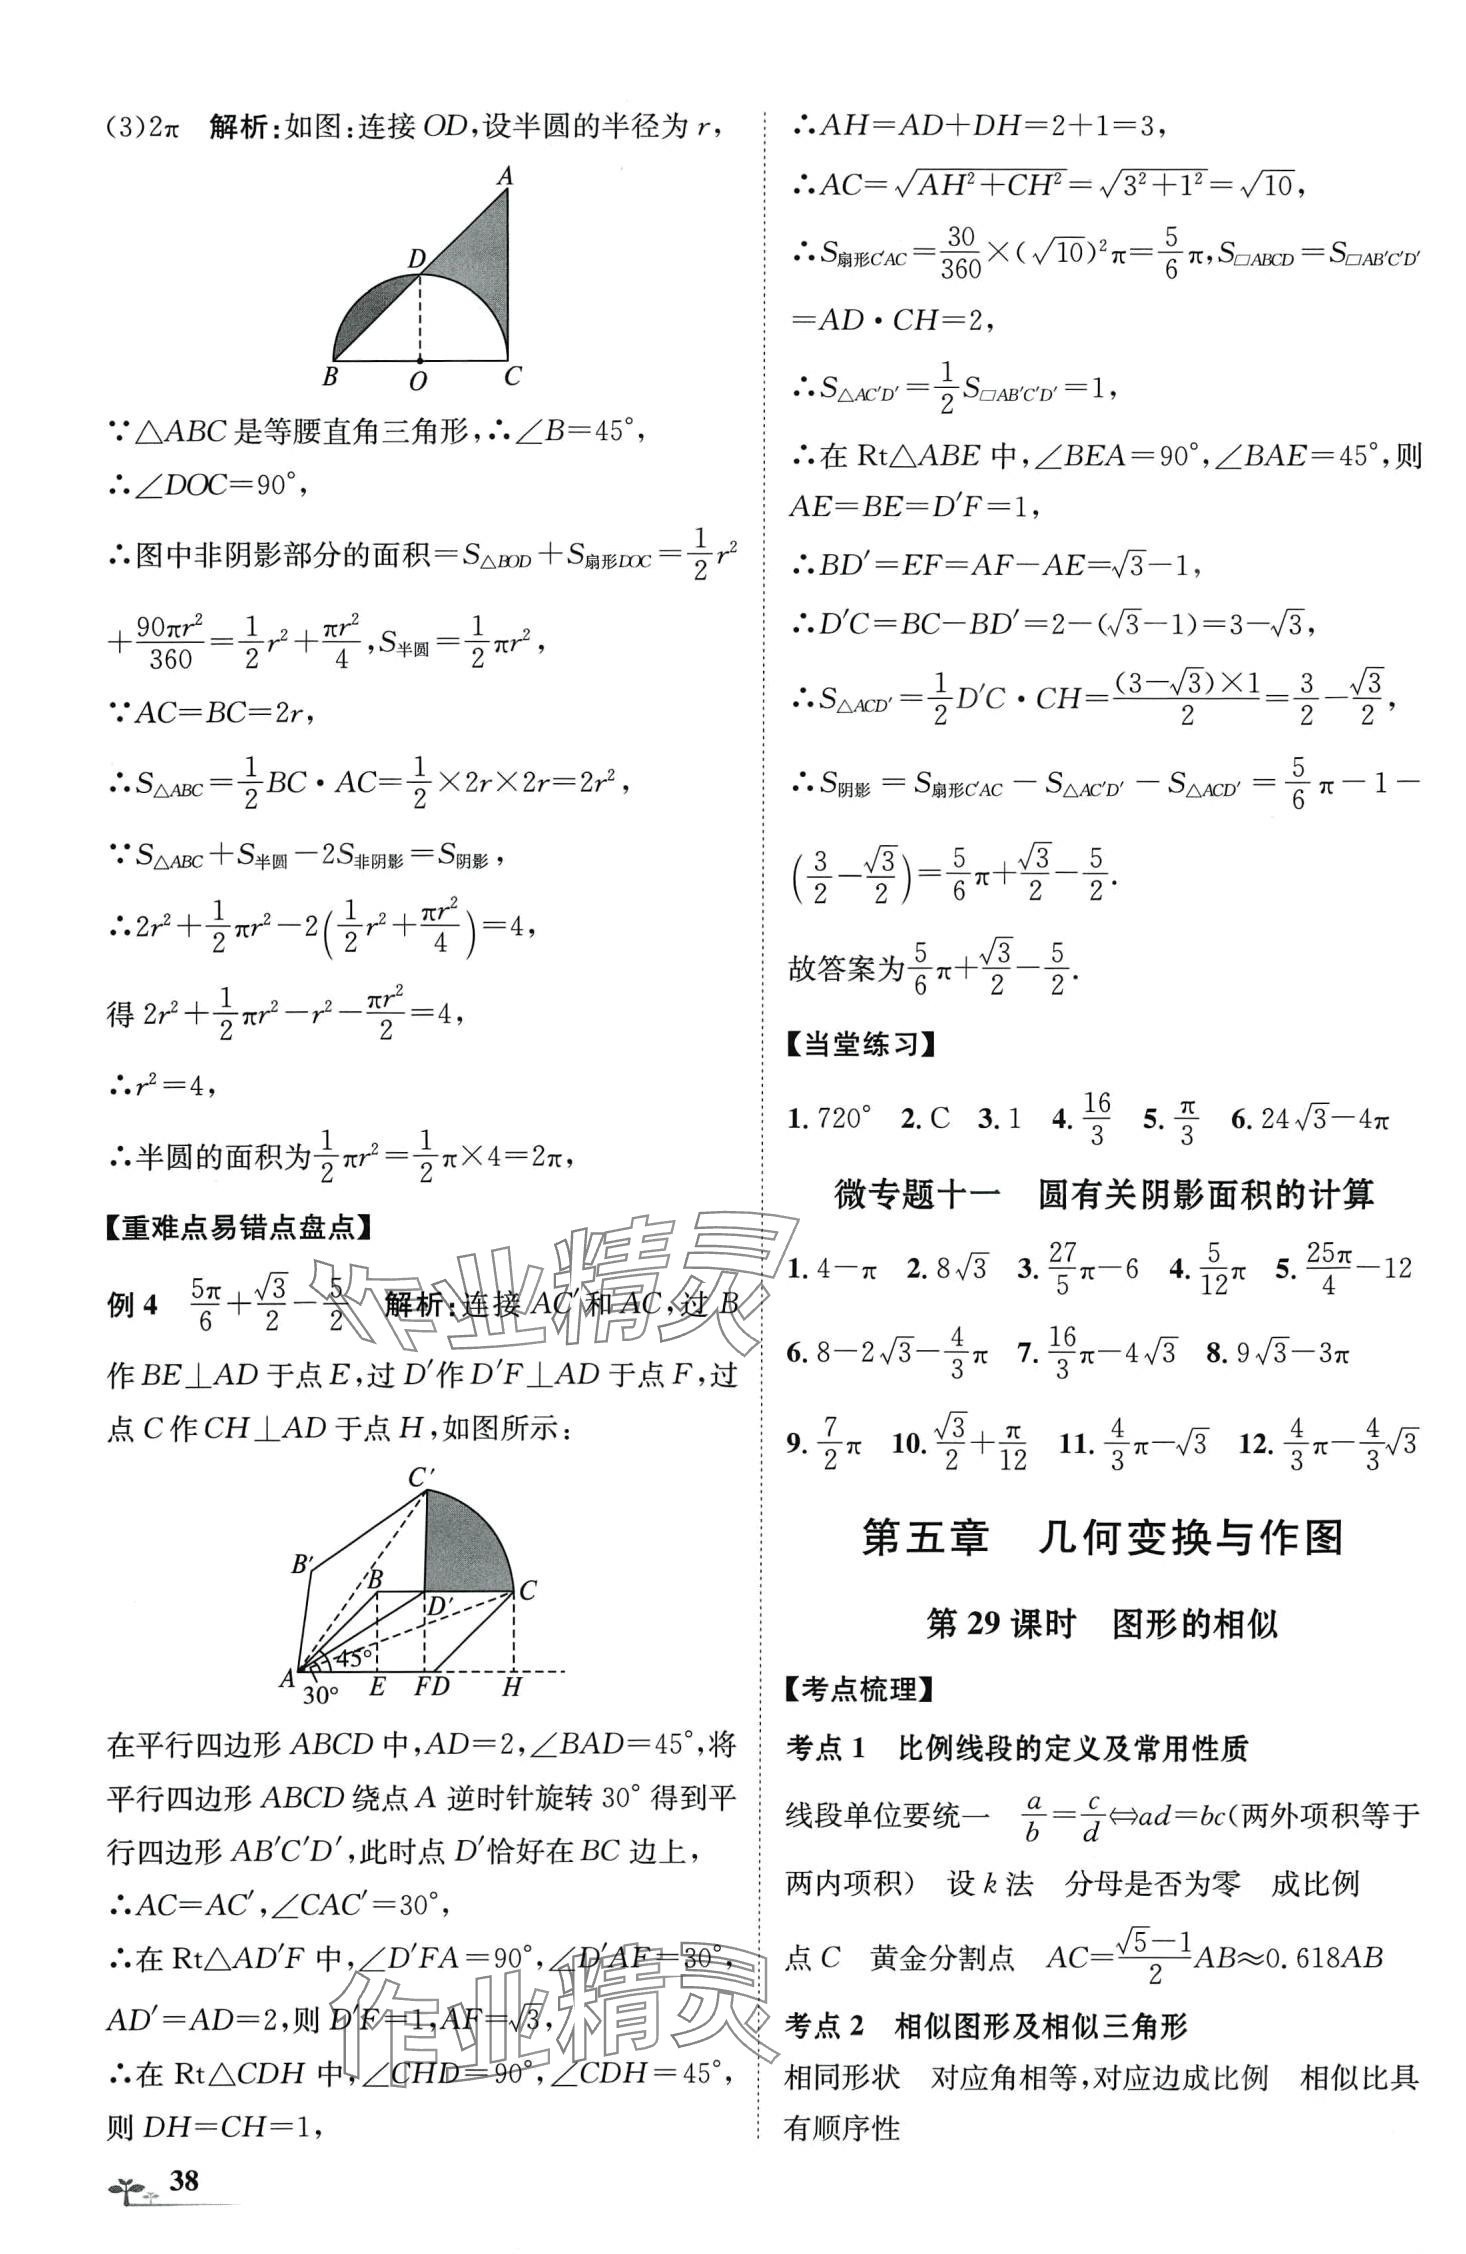 (3)2π 解析:如图:连接 OD,设半圆的半径为 r,
A
D
B O C
∵△ABC 是等腰直角三角形,∴∠B=45°,
∴∠DOC=90°,
∴图中非阴影部分的面积=S△BOD+S扇形DOC=1/2r²
+90πr²/360=1/2r²+πr²/4,S半圆=1/2πr²,
∵AC=BC=2r,
∴S△ABC=1/2BC·AC=1/2×2r×2r=2r²,
∵S△ABC+S半圆-2S非阴影=S阴影,
∴2r²+1/2πr²-2(1/2r²+πr²/4)=4,
得 2r²+1/2πr²-r²-πr²/2=4,
∴r²=4,
∴半圆的面积为1/2πr²=1/2π×4=2π,
【重难点易错点盘点】
例4 5π/6+√3/2-5/2 解析:连接 AC′和 AC,过 B
作 BE⊥AD 于点 E,过 D′作 D′F⊥AD 于点 F,过
点 C 作 CH⊥AD 于点 H,如图所示:
C′
B′
B D′ C
A 45° 30° E FD H
在平行四边形 ABCD 中,AD=2,∠BAD=45°,将
平行四边形 ABCD 绕点 A 逆时针旋转 30°得到平
行四边形 AB′C′D′,此时点 D′恰好在 BC 边上,
∴AC=AC′,∠CAC′=30°,
∴在 Rt△AD′F 中,∠D′FA=90°,∠D′AF=30°,
AD′=AD=2,则 D′F=1,AF=√3,
∴在 Rt△CDH 中,∠CHD=90°,∠CDH=45°,
则 DH=CH=1,
38
∴AH=AD+DH=2+1=3,
∴AC=√(AH²+CH²)=√(3²+1²)=√10,
∴S扇形C′AC=30/360×(√10)²π=5/6π,S□ABCD=S□AB′C′D′
=AD·CH=2,
∴S△AC′D′=1/2S□AB′C′D′=1,
∴在 Rt△ABE 中,∠BEA=90°,∠BAE=45°,则
AE=BE=D′F=1,
∴BD′=EF=AF-AE=√3-1,
∴D′C=BC-BD′=2-(√3-1)=3-√3,
∴S△ACD′=1/2D′C·CH=(3-√3)×1/2=3/2-√3/2,
∴S阴影=S扇形C′AC-S△AC′D′-S△ACD′=5/6π-1-
(3/2-√3/2)=5/6π+√3/2-5/2.
故答案为5/6π+√3/2-5/2.
【当堂练习】
1.720° 2.C 3.1 4.16/3 5.π/3 6.24√3-4π
微专题十一 圆有关阴影面积的计算
1.4-π 2.8√3 3.27/5π-6 4.5/12π 5.25π/4-12
6.8-2√3-4/3π 7.16/3π-4√3 8.9√3-3π
9.7/2π 10.√3/2+π/12 11.4/3π-√3 12.4/3π-4/3√3
第五章 几何变换与作图
第 29 课时 图形的相似
【考点梳理】
考点1 比例线段的定义及常用性质
线段单位要统一 a/b=c/d⇔ad=bc(两外项积等于
两内项积) 设 k 法 分母是否为零 成比例
点 C 黄金分割点 AC=(√5-1)/2AB≈0.618AB
考点2 相似图形及相似三角形
相同形状 对应角相等,对应边成比例 相似比具
有顺序性
作业精灵
作业精灵